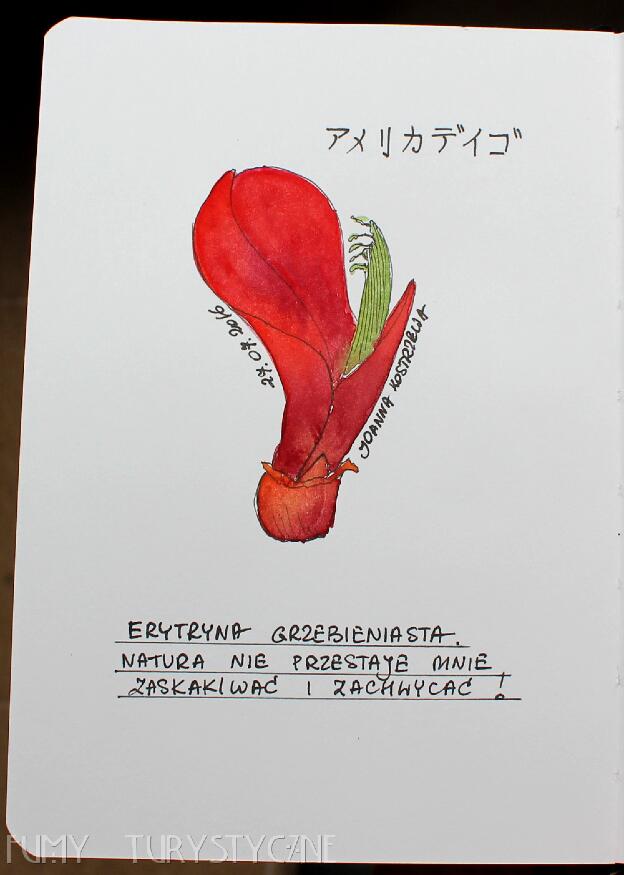 アメリカデイゴ
27.07.2016
JOANNA KOSTRZEWA
ERYTRYNA GRZEBIENIASTA.
NATURA NIE PRZESTAJE MNIE
ZASKAKIWAĆ I ZACHWYCAĆ!
FUMY TURYSTYCZNE